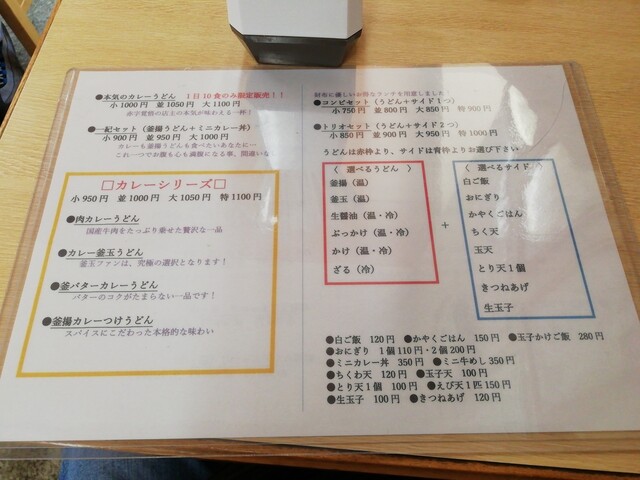 ●本気のカレーうどん 1日10食のみ限定販売！！
小1000円 並1050円 大1100円
赤字覚悟の店主の本気が味わえる一杯！
●一紀セット（釜揚うどん＋ミニカレー丼）
小900円 並950円 大1000円
カレーも釜揚うどんも食べたいあなたに…
これ一つでお腹も心も満腹になる事、間違いな
□カレーシリーズ□
小950円 並1000円 大1050円 特1100円
●肉カレーうどん
国産牛肉をたっぷり乗せた贅沢な一品
●カレー釜玉うどん
釜玉ファンは、究極の選択となります！
●釜バターカレーうどん
バターのコクがたまらない一品です！
●釜揚カレーつけうどん
スパイスにこだわった本格的な味わい
財布に優しいお得なランチを用意しました！
●コンビセット（うどん＋サイド1つ）
小750円 並800円 大850円 特900円
●トリオセット（うどん＋サイド2つ）
小850円 並900円 大950円 特1000円
うどんは赤枠より、サイドは青枠よりお選び下さい
〈 選べるうどん 〉
釜揚（温）
釜玉（温）
生醤油（温・冷）
ぶっかけ（温・冷）
かけ（温・冷）
ざる（冷）
＋
〈 選べるサイド 〉
白ご飯
おにぎり
かやくごはん
ちく天
玉天
とり天1個
きつねあげ
生玉子
●白ご飯 120円 ●かやくごはん 150円 ●玉子かけご飯 280円
●おにぎり 1個110円・2個200円
●ミニカレー丼 350円 ●ミニ牛めし 350円
●ちくわ天 120円 ●玉子天 100円
●とり天1個 100円 ●えび天1匹150円
●生玉子 100円 ●きつねあげ 120円